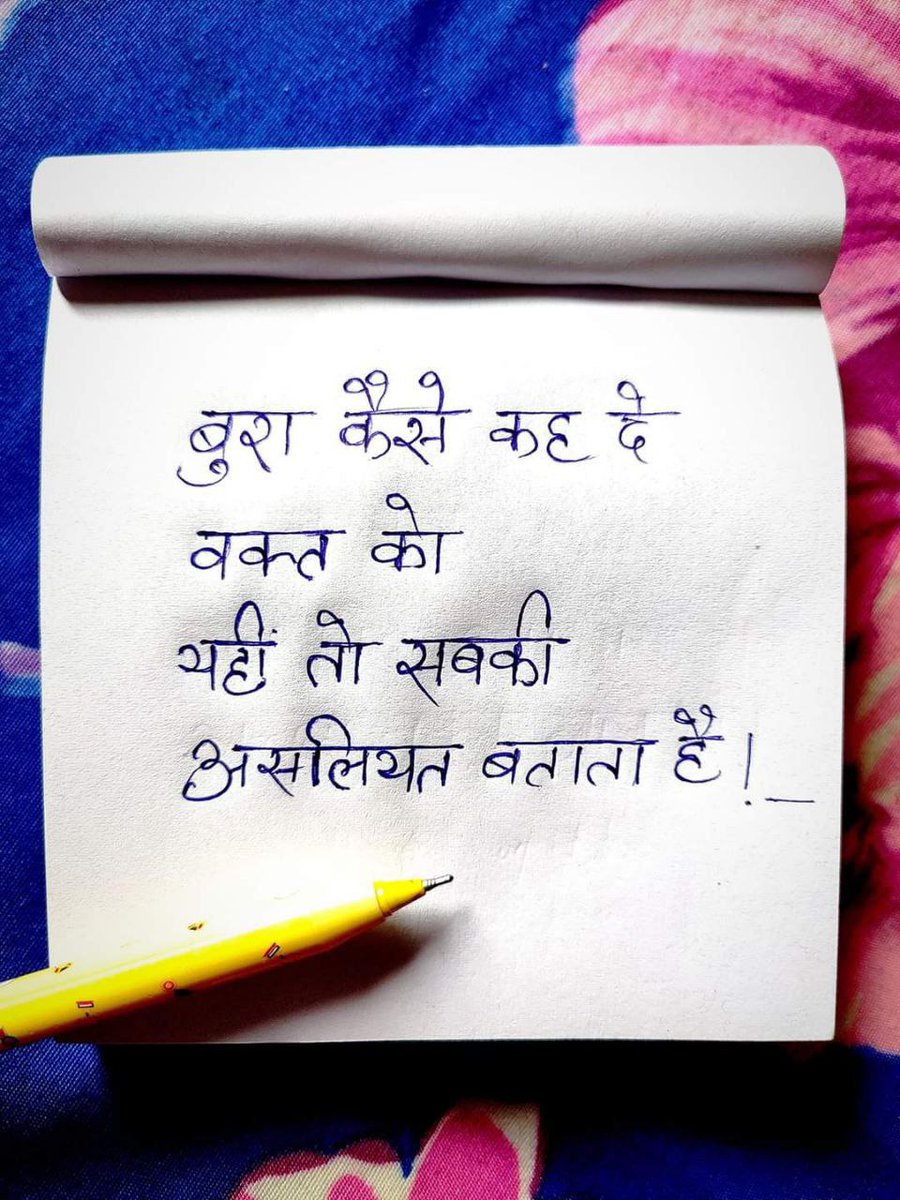 बुरा कैसे कह दे
वक्त को
यहीं तो सबकी
असलियत बताता है!_